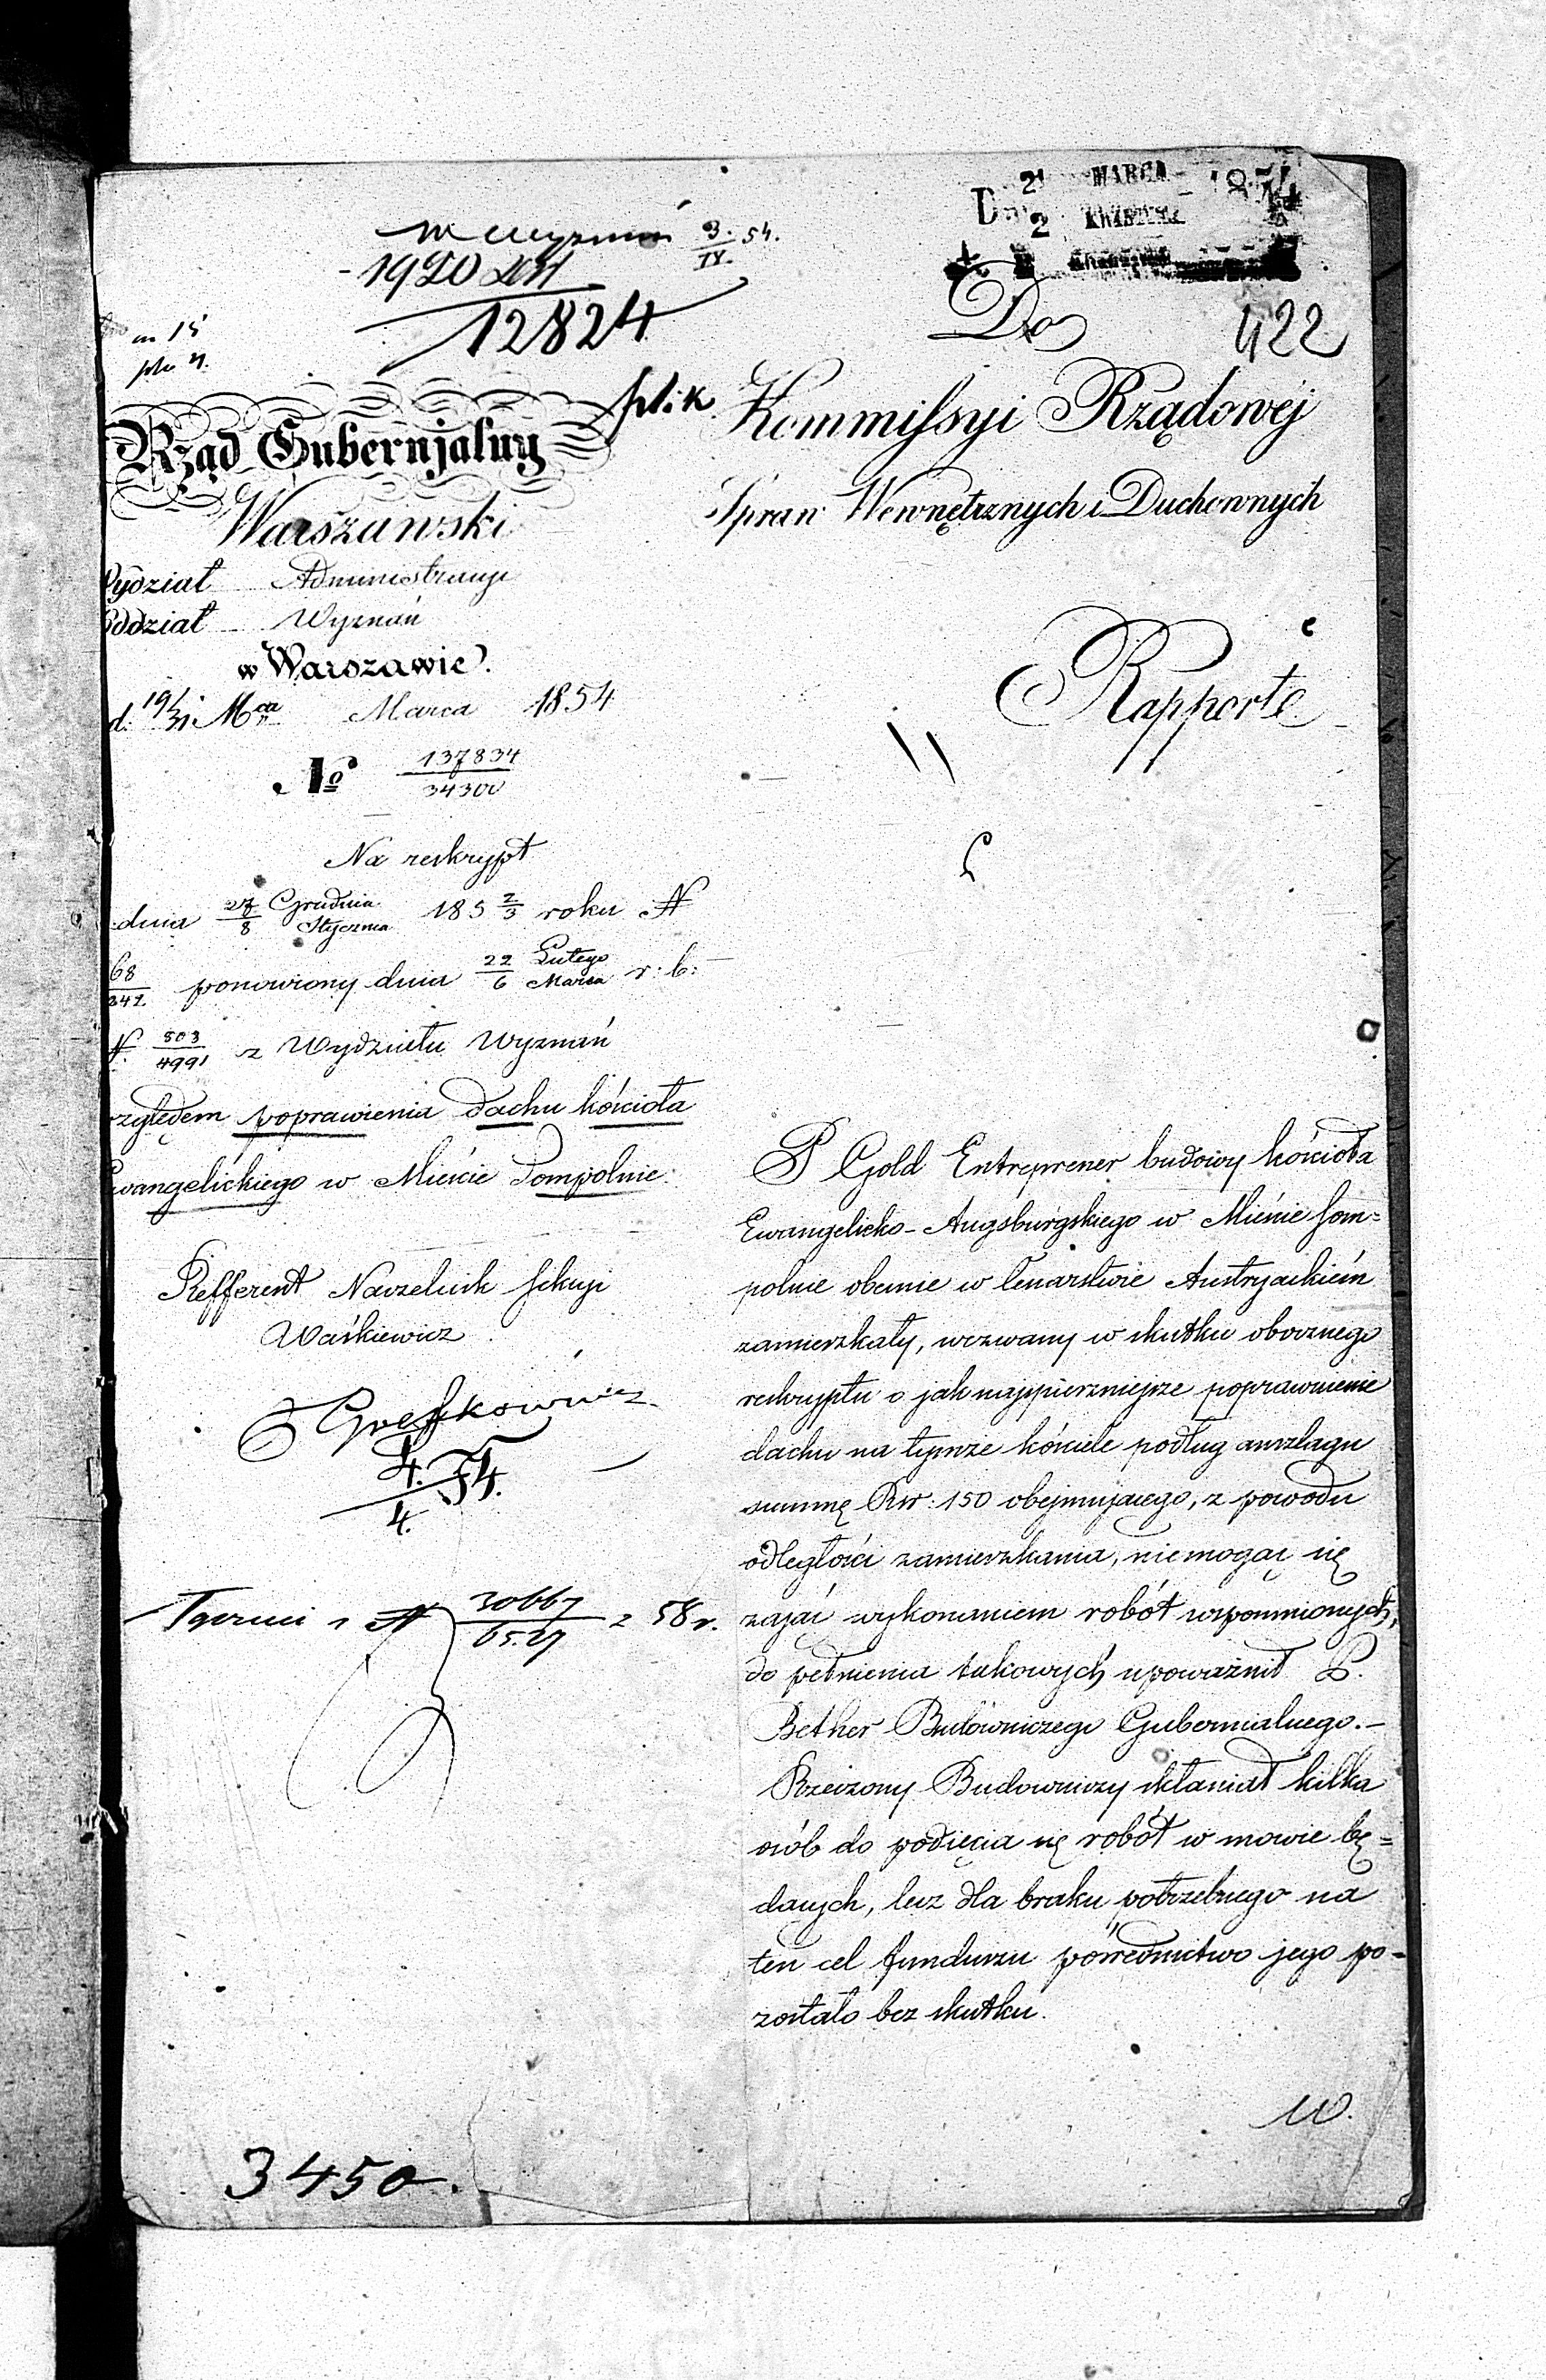 D. 21 MARCA 1854
2 KWIETNIA
Wyznań 3. 54.
IV.
1920
12824
422
plik
Do
Kommissyi Rządowej
Spraw Wewnętrznych i Duchownych
Rapport
Rząd Gubernjalny
Warszawski
Wydział Administracyi
Oddział Wyznań
w Warszawie.
d. 19/31 Mca Marca 1854
No 137834
34300
Na reskrypt
dnia 27/8 Grudnia Stycznia 185 2/3 roku N
68
342 ponowiony dnia 22/6 Lutego Marca r: b:
N. 803
4991 z Wydziału Wyznań
względem poprawienia dachu kościoła
Ewangelickiego w Mieście Sompolnie
Refferent Naczelnik Sekcyi
Waśkiewicz
4. 54.
4.
N 30667 z 58 r.
P Gold Entreprener budowy kościoła
Ewangelicko-Augsburgskiego w Mieście Som=
polnie obecnie w Cesarstwie Austryackiém
zamieszkały, wezwany w skutku obocznego
reskryptu o jak najspieszniejsze poprawienie
dachu na tymże kościele podług anszlagu
summę Rsr: 150 obejmującego, z powodu
odległości zamieszkania, niemogąc się
zająć wykonaniem robót wspomnionych,
do pełnienia takowych upoważnił P.
Bether Budowniczego Gubernialnego.—
Rzeczony Budowniczy skłaniał kilka
osób do podjęcia się robót w mowie bę=
dących, lecz dla braku potrzebnego na
ten cel funduszu pośrednictwo jego po-
zostało bez skutku.
W.
3450.